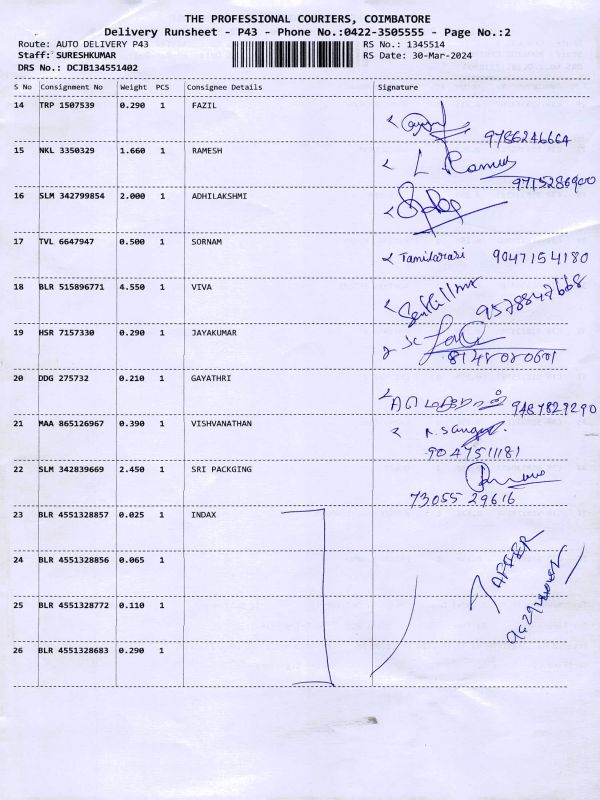 THE PROFESSIONAL COURIERS, COIMBATORE
Delivery Runsheet - P43 - Phone No.:0422-3505555 - Page No.:2
Route: AUTO DELIVERY P43 RS No.: 1345514
Staff: SURESHKUMAR RS Date: 30-Mar-2024
DRS No.: DCJB134551402
S No Consignment No Weight PCS Consignee Details Signature
14 TRP 1507539 0.290 1 FAZIL
9786246664
15 NKL 3350329 1.660 1 RAMESH
L. Ramesh
9715286900
16 SLM 342799854 2.000 1 ADHILAKSHMI
17 TVL 6647947 0.500 1 SORNAM
Tamilarasi 9047154180
18 BLR 515896771 4.550 1 VIVA
9578847668
19 HSR 7157330 0.290 1 JAYAKUMAR
20 DDG 275732 0.210 1 GAYATHRI
9487829290
21 MAA 865126967 0.390 1 VISHVANATHAN
9047511181
22 SLM 342839669 2.450 1 SRI PACKGING
73055 29616
23 BLR 4551328857 0.025 1 INDAX
24 BLR 4551328856 0.065 1
25 BLR 4551328772 0.110 1
26 BLR 4551328683 0.290 1